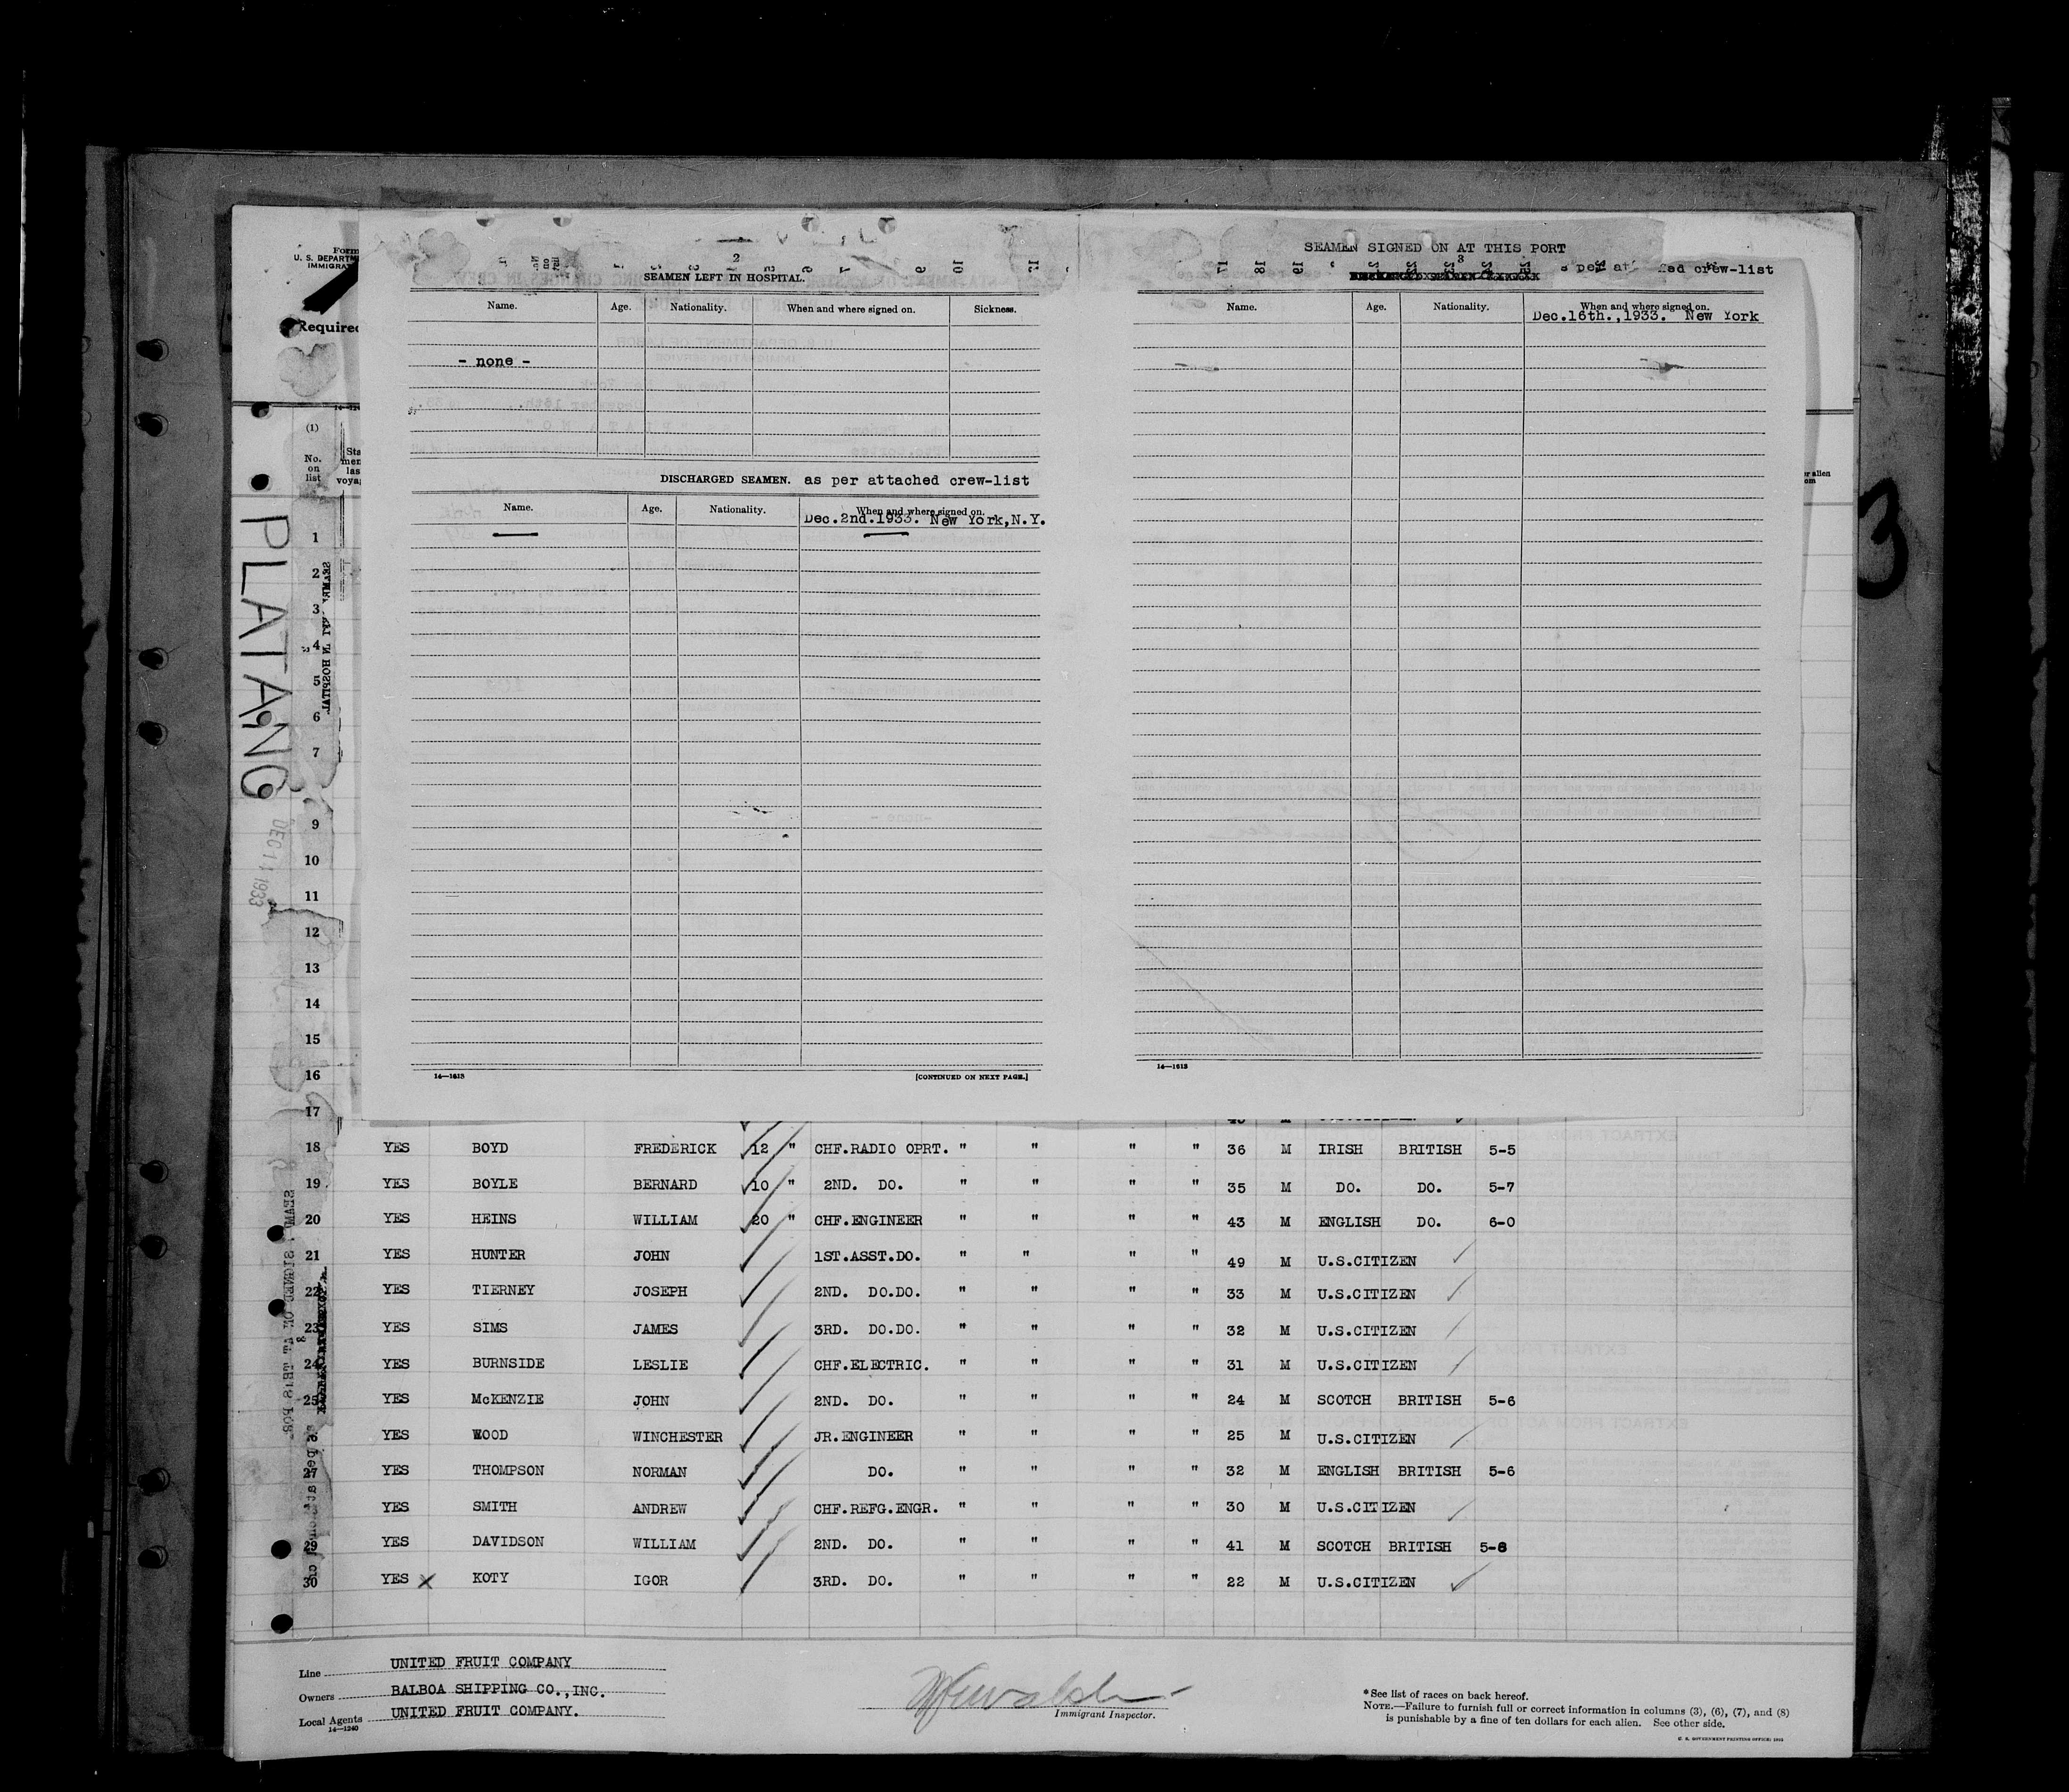 Form
U. S. DEPARTM
IMMIGRAT
Required
(1)
No.
on
list
Sta
men
las
voya
PLATANO
DEC 11 1933
2
SEAMEN LEFT IN HOSPITAL.
Name. Age. Nationality. When and where signed on. Sickness.
- none -
DISCHARGED SEAMEN. as per attached crew-list
Name. Age. Nationality. When and where signed on.
Dec.2nd.1933. New York,N.Y.
14—1613 [CONTINUED ON NEXT PAGE.]
SEAMEN SIGNED ON AT THIS PORT
3
crew-list
Name. Age. Nationality. When and where signed on.
Dec.16th.,1933. New York
14—1613
3
1
2
3
4
5
6
7
9
10
11
12
13
14
15
16
17
18 YES BOYD FREDERICK 12 " CHF.RADIO OPRT. " " " " 36 M IRISH BRITISH 5-5
19 YES BOYLE BERNARD 10 " 2ND. DO. " " " " 35 M DO. DO. 5-7
20 YES HEINS WILLIAM 20 " CHF.ENGINEER " " " " 43 M ENGLISH DO. 6-0
21 YES HUNTER JOHN 1ST.ASST.DO. " " " " 49 M U.S.CITIZEN
22 YES TIERNEY JOSEPH 2ND. DO.DO. " " " " 33 M U.S.CITIZEN
23 YES SIMS JAMES 3RD. DO.DO. " " " " 32 M U.S.CITIZEN
24 YES BURNSIDE LESLIE CHF.ELECTRIC. " " " " 31 M U.S.CITIZEN
25 YES McKENZIE JOHN 2ND. DO. " " " " 24 M SCOTCH BRITISH 5-6
YES WOOD WINCHESTER JR.ENGINEER " " " " 25 M U.S.CITIZEN
27 YES THOMPSON NORMAN DO. " " " " 32 M ENGLISH BRITISH 5-6
YES SMITH ANDREW CHF.REFG.ENGR. " " " " 30 M U.S.CITIZEN
29 YES DAVIDSON WILLIAM 2ND. DO. " " " " 41 M SCOTCH BRITISH 5-8
30 YES x KOTY IGOR 3RD. DO. " " " " 22 M U.S.CITIZEN
Line UNITED FRUIT COMPANY
Owners BALBOA SHIPPING CO.,INC.
Local Agents UNITED FRUIT COMPANY.
14—1240
Immigrant Inspector.
* See list of races on back hereof.
NOTE.—Failure to furnish full or correct information in columns (3), (6), (7), and (8)
is punishable by a fine of ten dollars for each alien. See other side.
U. S. GOVERNMENT PRINTING OFFICE: